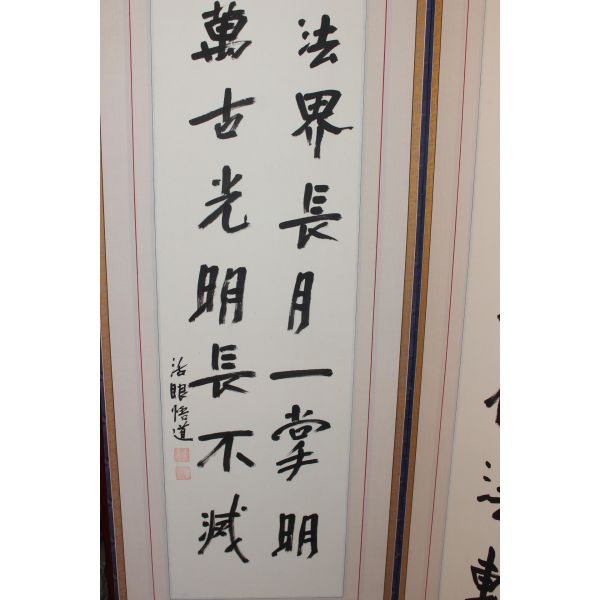 法界長月一掌明
萬古光明長不滅
活眼悟道
法轉